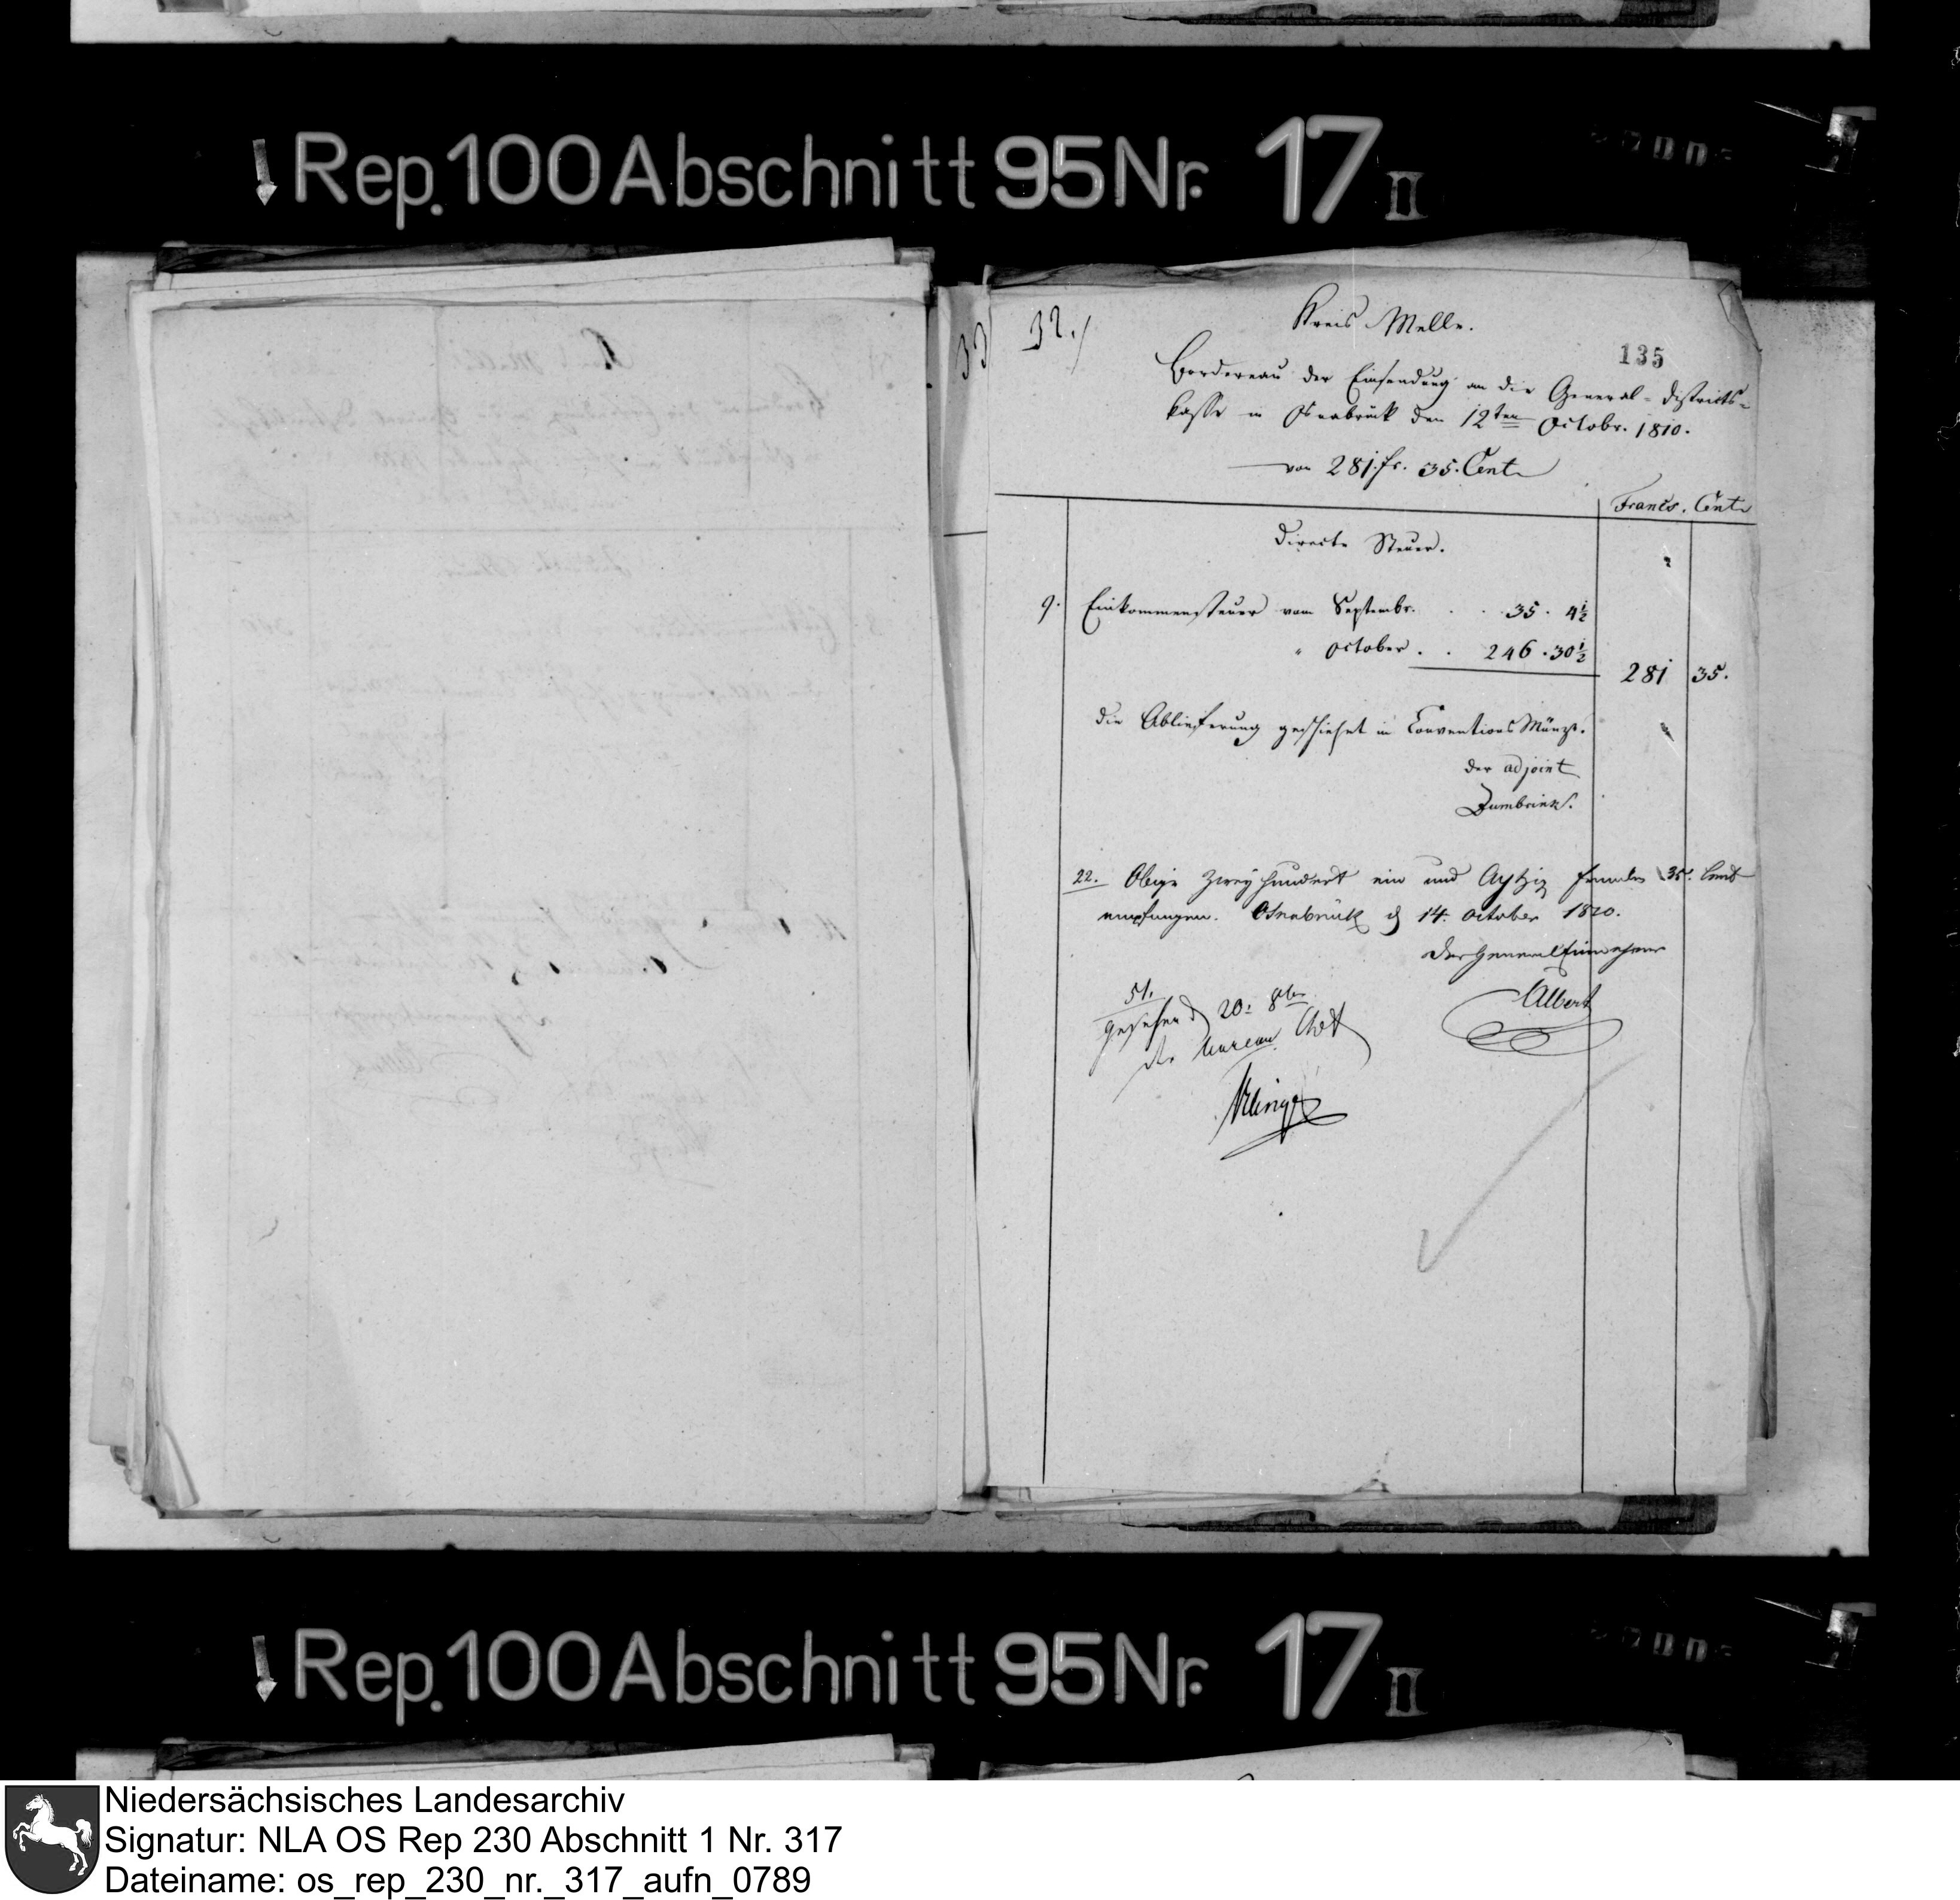 Rep. 100 Abschnitt 95 Nr. 17 II
33
32.)
135
Kreis Melle.
Bordereau der Einsendung an die General-Districts-
kasse in Osnabrück den 12ten Octobr. 1810.
von 281. fr. 35. Cent
Francs. Cent
Directe Steuer.
9. Einkommensteuer vom Septembr. . . 35. 4½
" October . . 246. 30½
281 35.
die Ablieferung geschiehet in Conventions Münze.
der adjoint
Zumbrink.
22. Obige Zweyhundert ein und Achtzig franks 35. Cent
empfangen. Osnabrück d 14. October 1810.
Der General Einnehmer
Albert
51.
gesehen d 20. 8br
der bureau Chef
Rep. 100 Abschnitt 95 Nr. 17 II
Niedersächsisches Landesarchiv
Signatur: NLA OS Rep 230 Abschnitt 1 Nr. 317
Dateiname: os_rep_230_nr._317_aufn_0789